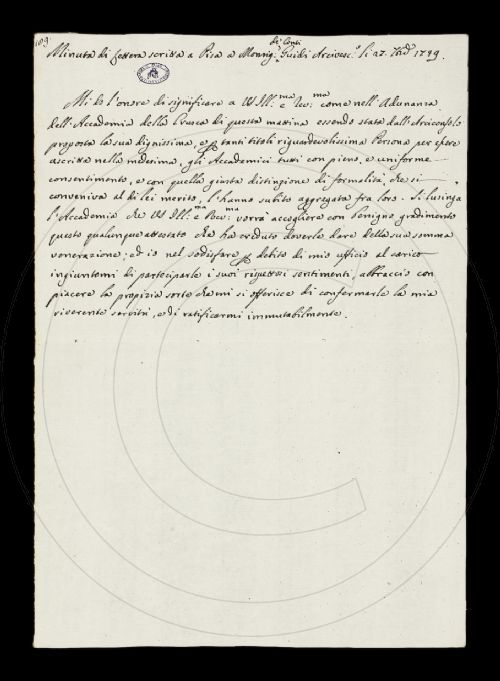 de' Conti
Minuta di lettera scritta a Pisa a Monsig.r Guidi Arcivesc.o li 27. 1749.
Mi dò l'onore di significare a VS Ill:ma e Rev:ma come nell'Adunanza
dell'Accademia della Crusca di questa mattina essendo stata dall'Arciconsolo
proposta la sua degnissima, e p tanti titoli riguardevolissima Persona per essere
ascritta nella medesima, gli Accademici tutti con pieno, e uniforme
consentimento, e con quella giusta distinzione di formalità, che si
conveniva al di lei merito, l'hanno subito aggregata fra loro. Si lusinga
l'Accademia che VS Ill:ma e Rev:ma vorrà accogliere con benigno gradimento
questo qualunque attestato che ha creduto doverle dare della sua somma
venerazione; ed io nel sodisfare p debito di mio ufficio al carico
ingiuntomi di parteciparle i suoi rispettosi sentimenti, abbraccio con
piacere la propizia sorte che mi si offerisce di confermarle la mia
riverente servitù, e di ratificarmi immutabilmente.